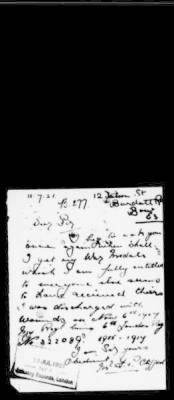 11.7.21. 12 St
B 277 Burdett Rd
Bow
E3
Dear Sir
I beg to ask you
once again when shall
I get my War Medals
which I am fully entitled
to everyone else seems
to have received theirs
I was discharged with
wounds on 6th 1917
6th London
No 322089 1915 - 1917
I am Sir yours
Obedient